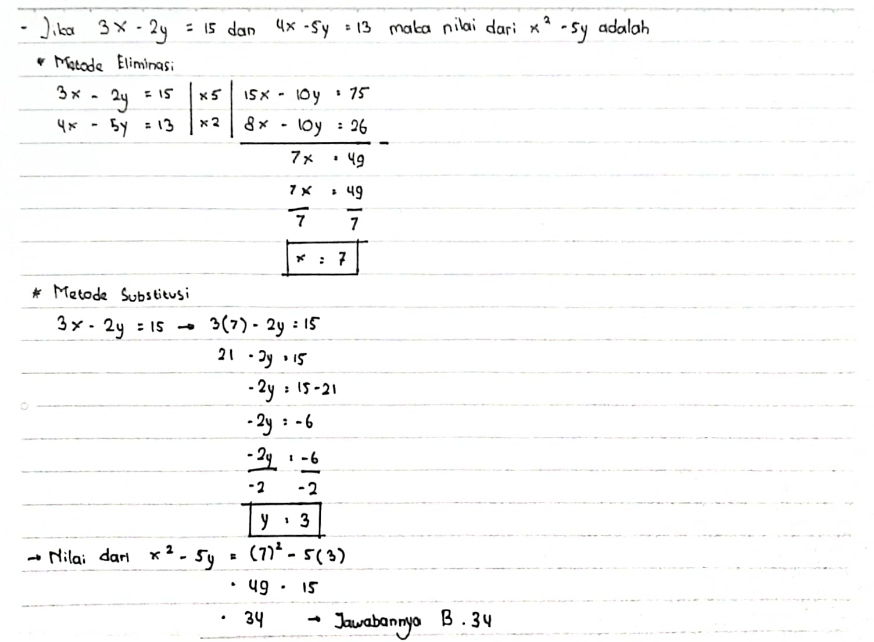 - Jika 3x - 2y = 15 dan 4x - 5y = 13 maka nilai dari x² - 5y adalah
* Metode Eliminasi
3x - 2y = 15 | x5 | 15x - 10y = 75
4x - 5y = 13 | x2 | 8x - 10y = 26 -
7x = 49
7x = 49
7 7
x = 7
* Metode Substitusi
3x - 2y = 15 → 3(7) - 2y = 15
21 - 2y = 15
-2y = 15 - 21
-2y = -6
-2y = -6
-2 -2
y = 3
→ Nilai dari x² - 5y = (7)² - 5(3)
= 49 - 15
= 34 → Jawabannya B. 34